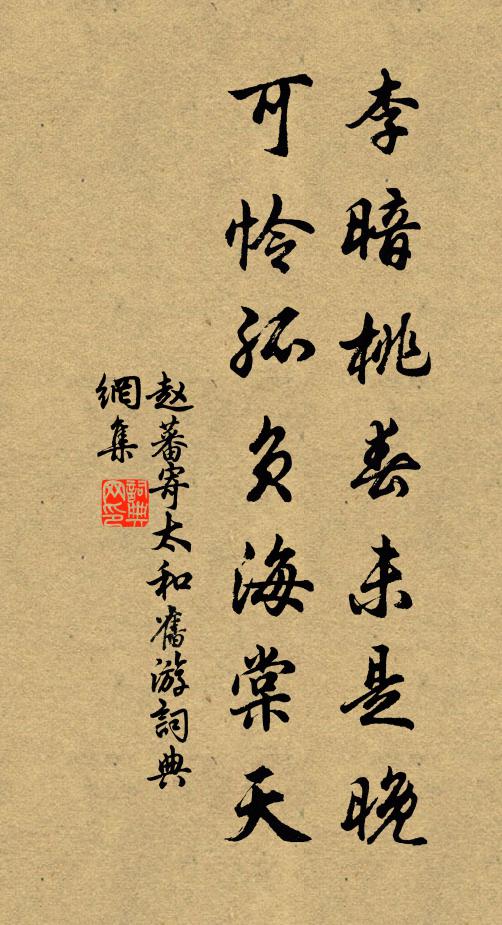 李暗桃春未是晚
可怜孤负海棠天
赵蕃寄太和旧游詞典
網集
詞典网印